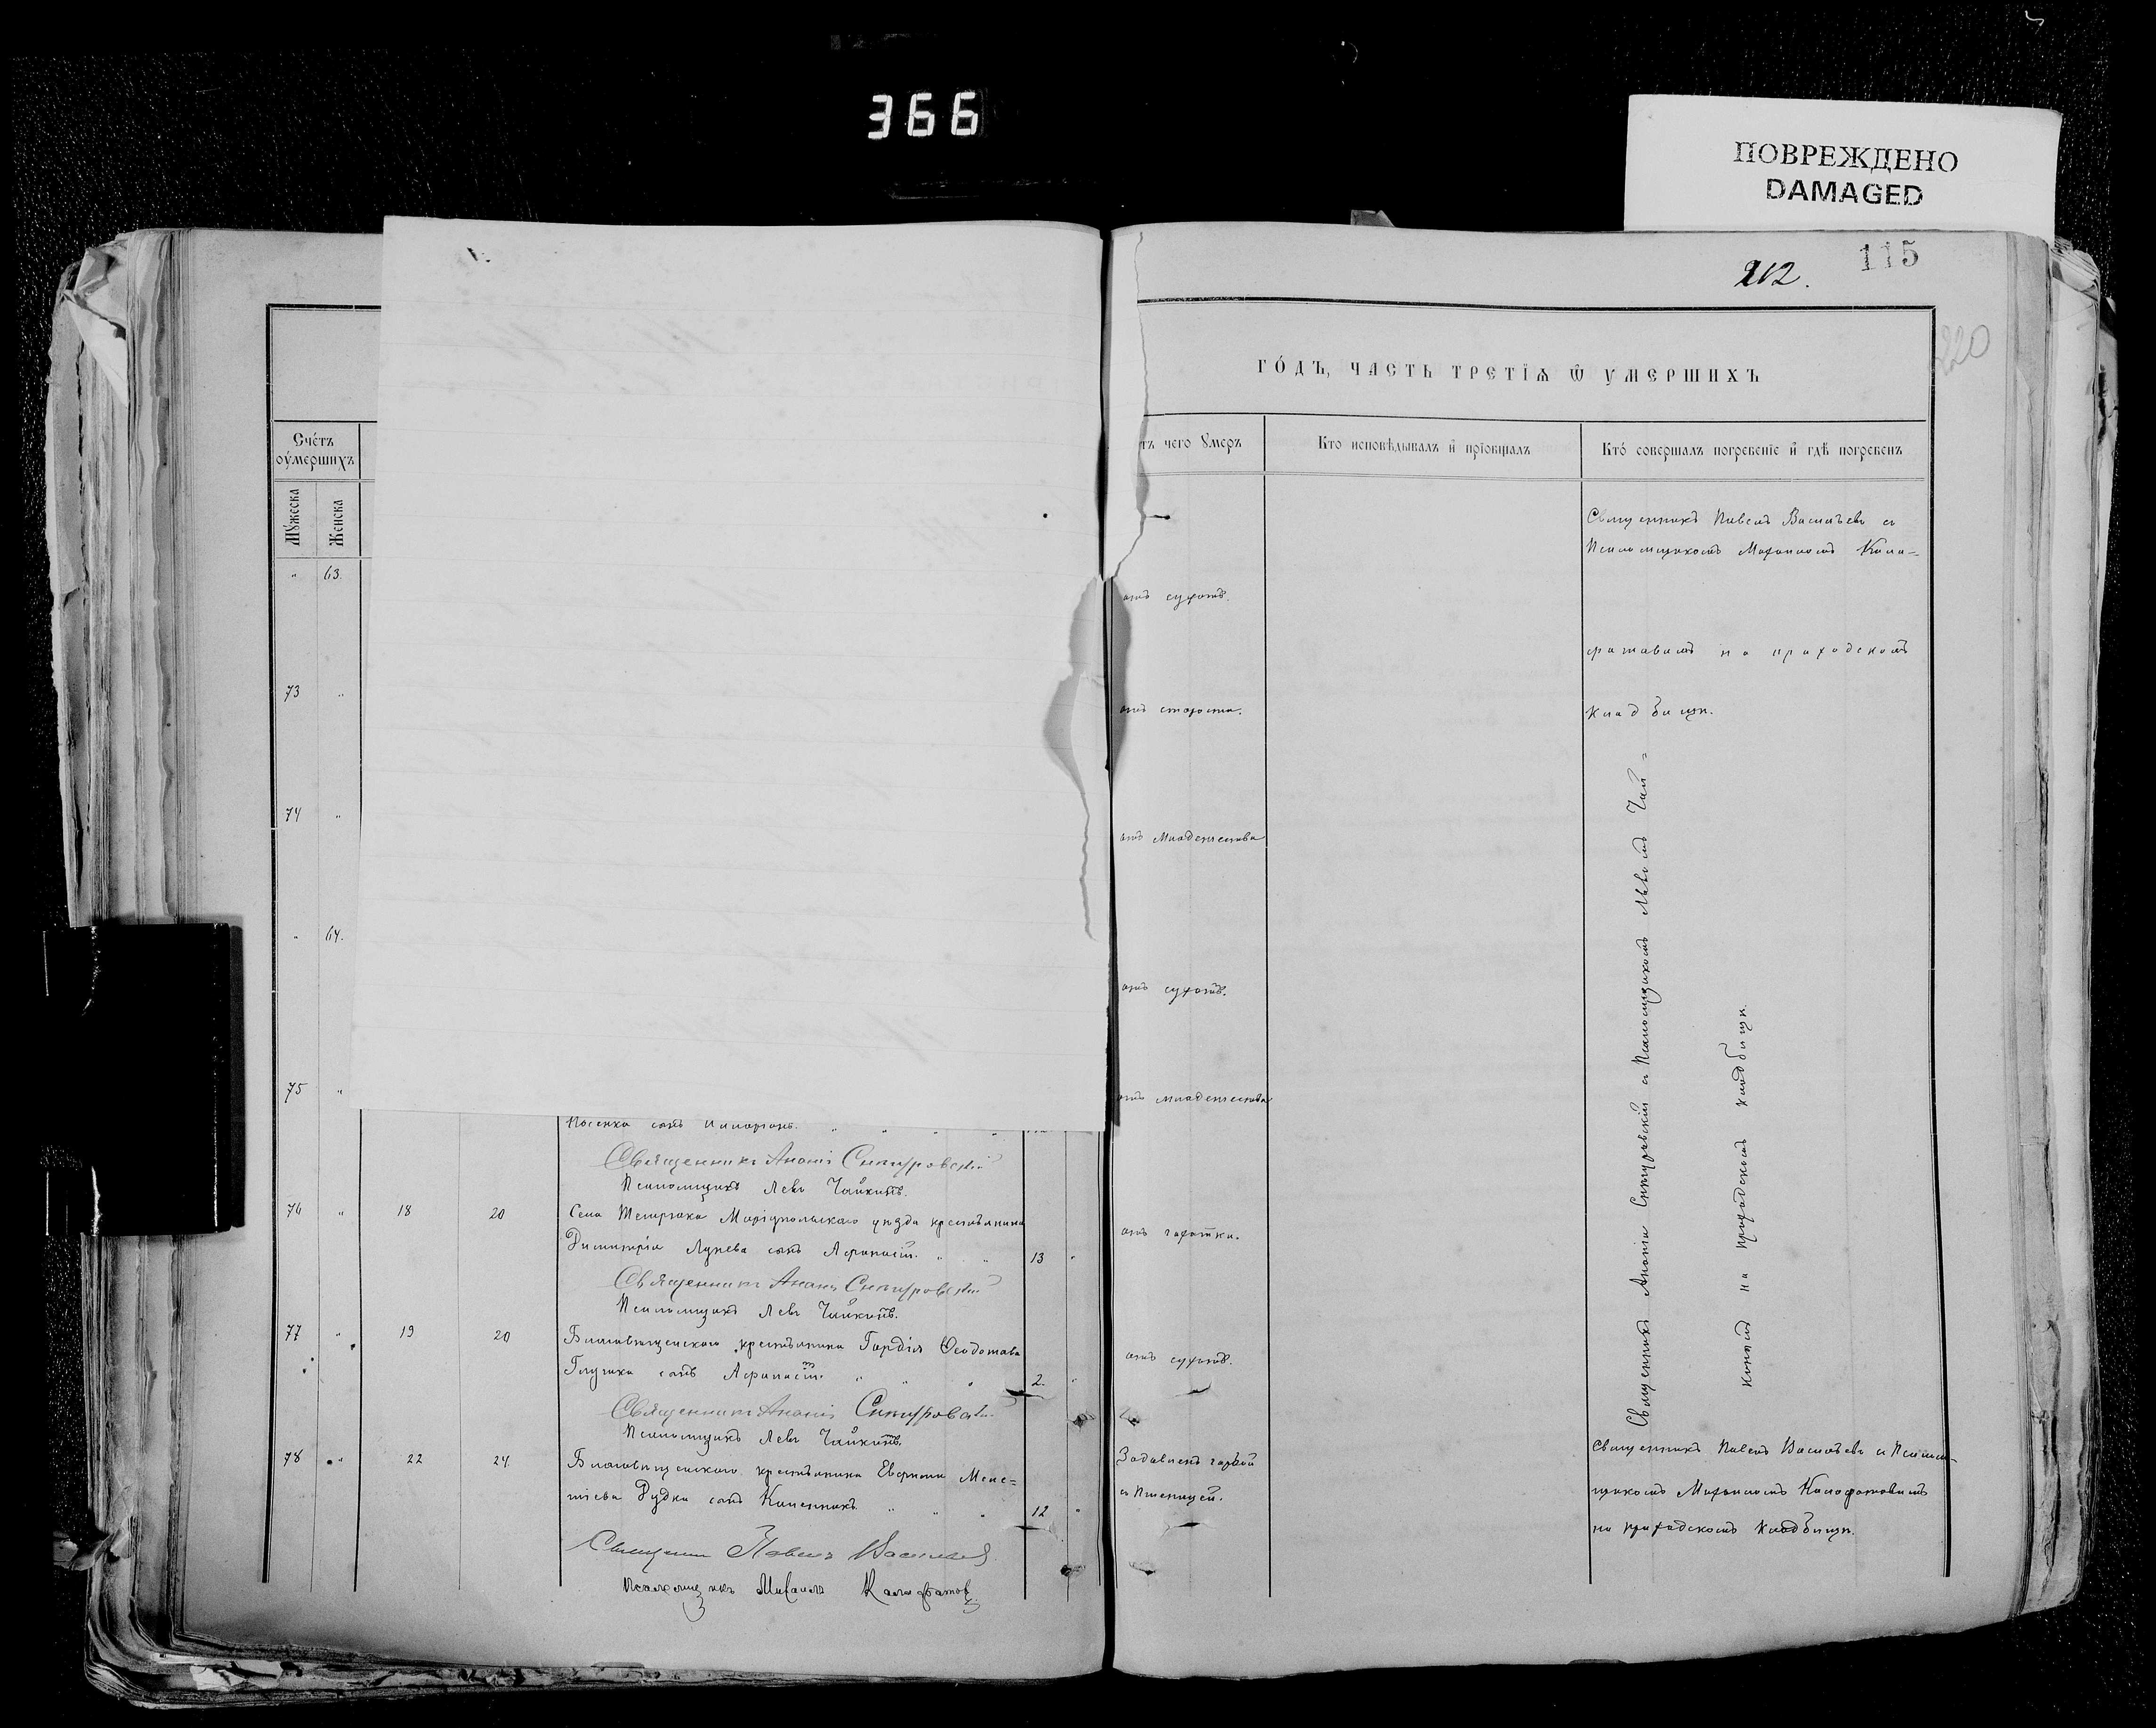 366
ПОВРЕЖДЕНО
DAMAGED
115
212.
220
Счетъ
оумершихъ
Мужеска
Женска
" 63.
73 "
74 "
" 64.
75 "
Носенка сынъ Илларіонъ. " " " "
Священникъ Ананій
Псаломщикъ Левъ Чайкинъ.
76 " 18 20 Села Маріупольскаго уѣзда крестьянина
Димитрія Лунева сынъ Афанасій. " " 13 "
Священникъ Ананій
Псаломщикъ Левъ Чайкинъ.
77 " 19 20 Благовѣщенскаго крестьянина Гордія Ѳеодотова
сынъ Афанасій. " " " 2. "
Священникъ Ананій
Псаломщикъ Левъ Чайкинъ.
78 " 22 24 Благовѣщенскаго крестьянина
Дудки сынъ " " " 12 "
Священникъ Павелъ Васильевъ
Псаломщикъ Михаилъ Калафатовъ
ГОДЪ, ЧАСТЬ ТРЕТІѦ Ѿ УМЕРШИХЪ
тъ чего Умеръ
Кто исповѣдывалъ и пріобщалъ
Кто совершалъ погребеніе и гдѣ погребенъ
отъ сухотъ.
отъ старости.
отъ младенства
отъ сухотъ.
отъ младенства
отъ горячки.
отъ сухотъ.
Задавленъ гарбой
съ пшеницей.
Священникъ Павелъ Васильевъ съ
Псаломщикомъ Михаиломъ Кала-
фатовымъ на приходскомъ
кладбищѣ.
Священникъ Ананій съ Псаломщикомъ Львомъ Чай=
кинымъ на приходскомъ кладбищѣ.
Священникъ Павелъ Васильевъ съ Псалом-
щикомъ Михаиломъ Калафатовымъ
на приходскомъ кладбищѣ.